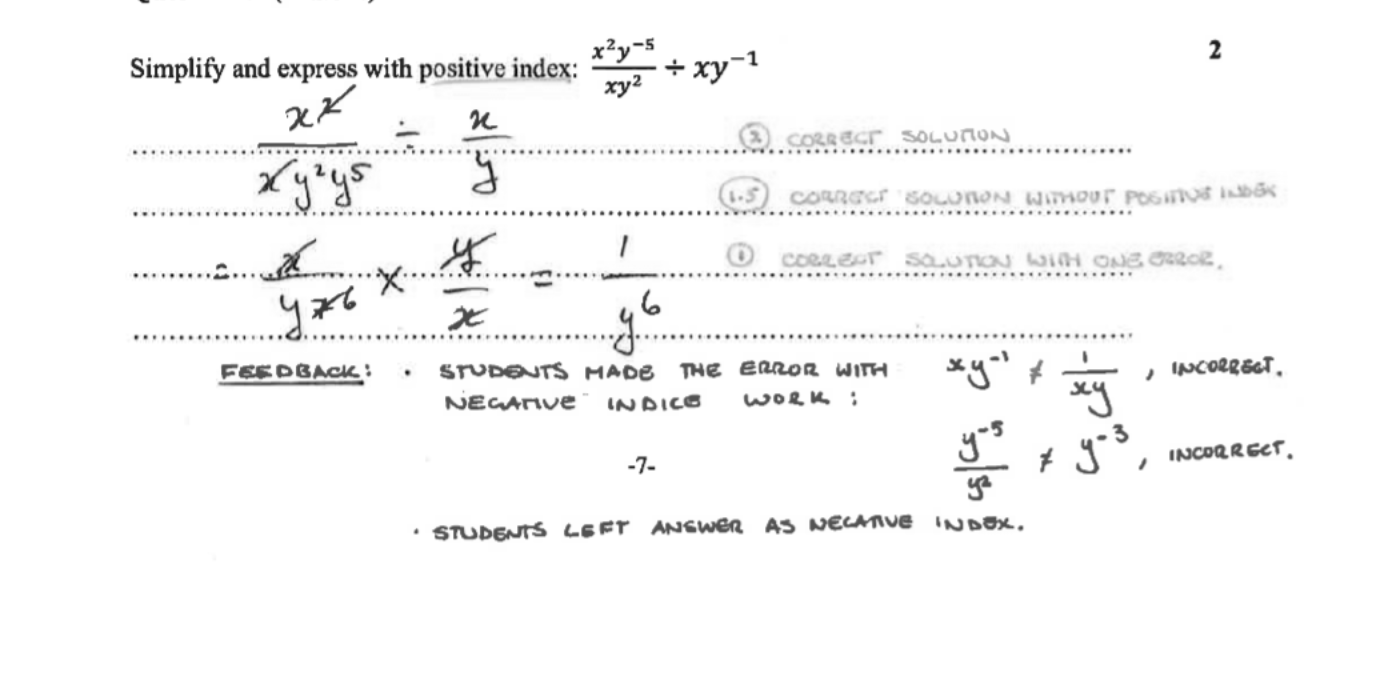 Simplify and express with positive index: x²y⁻⁵/xy² ÷ xy⁻¹ 2
x²/xy²y⁵ ÷ x/y
② CORRECT SOLUTION
①.5 CORRECT SOLUTION WITHOUT POSITIVE INDEX
= x/y⁷⁶ × y/x = 1/y⁶
① CORRECT SOLUTION WITH ONE ERROR.
FEEDBACK: • STUDENTS MADE THE ERROR WITH xy⁻¹ ≠ 1/xy, INCORRECT.
NEGATIVE INDICE WORK:
y⁻⁵/y² ≠ y⁻³, INCORRECT.
-7-
• STUDENTS LEFT ANSWER AS NEGATIVE INDEX.